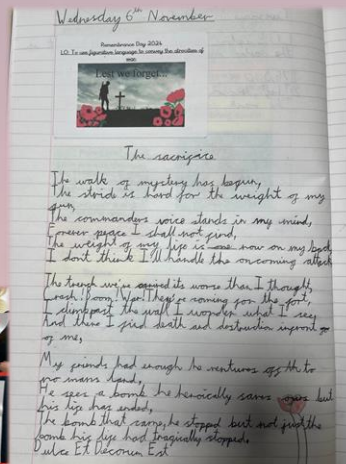 Wednesday 6th November
Remembrance Day 2024
LO: To use figurative language to convey the atrocities of
war.
Lest we forget...
The sacrifice
The walk of mystery has begun,
The stride is hard for the weight of my
gun,
The commanders voice stands in my mind,
Forever peace I shall not find,
The weight of my life is now on my back,
I dont think I'll handle the oncoming attack
The trench we've its worse than I thought,
Crash! Boom! Wham! They're coming for the fort,
I climb past the wall I wonder what I see
And there I find death and destruction infront
of me,
My friends had enough he ventures off to
no mans land,
He sees a bomb he heroically saves but
his life has ended,
The bomb that came, he stopped but not just the
bomb his life had tragically stopped,
Dulce Et Decorum Est